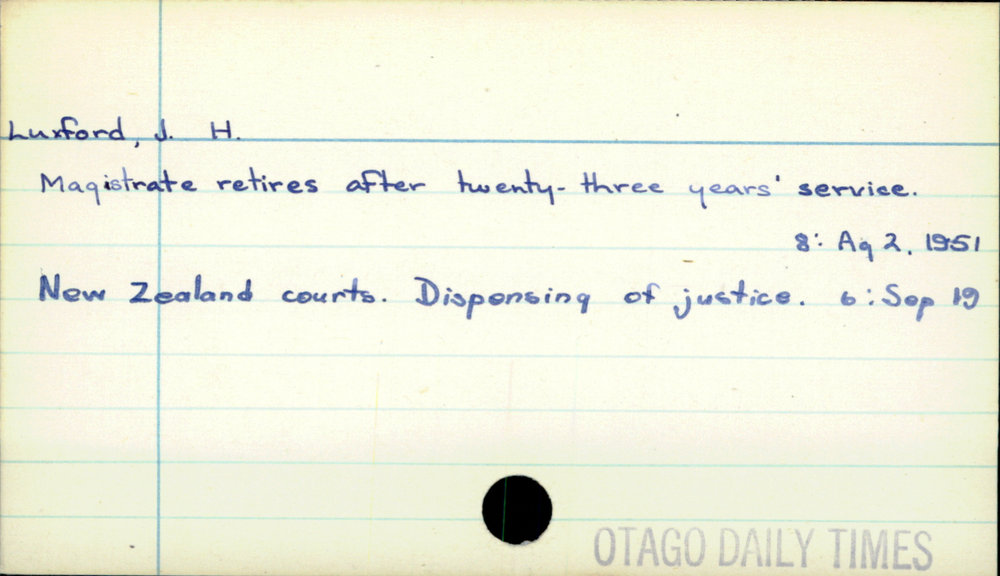 Luxford, J. H.
Magistrate retires after twenty-three years' service.
8: Ag 2, 1951
New Zealand courts. Dispensing of justice. 6: Sep 19
OTAGO DAILY TIMES